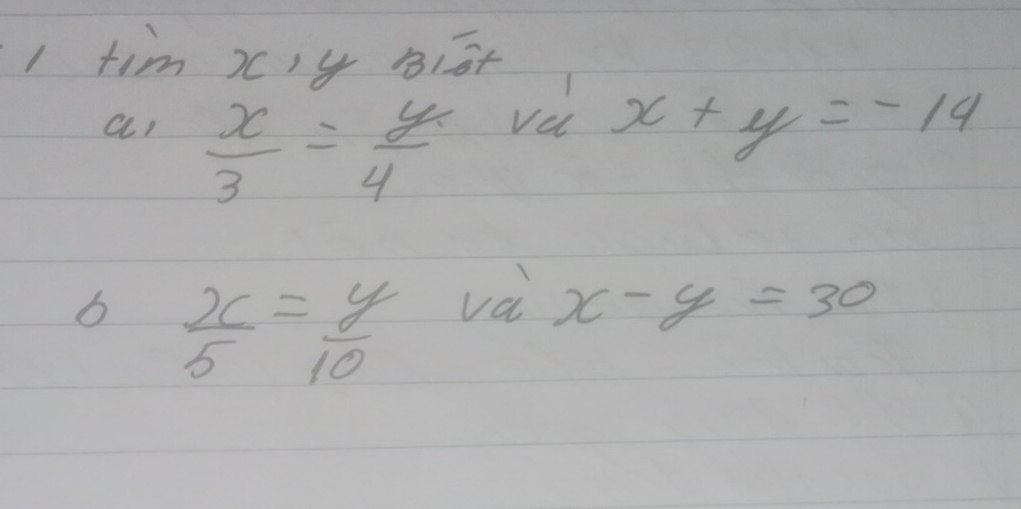 1 tìm x, y Biết
a, x/3 = y/4 và x + y = -14
b x/5 = y/10 và x - y = 30